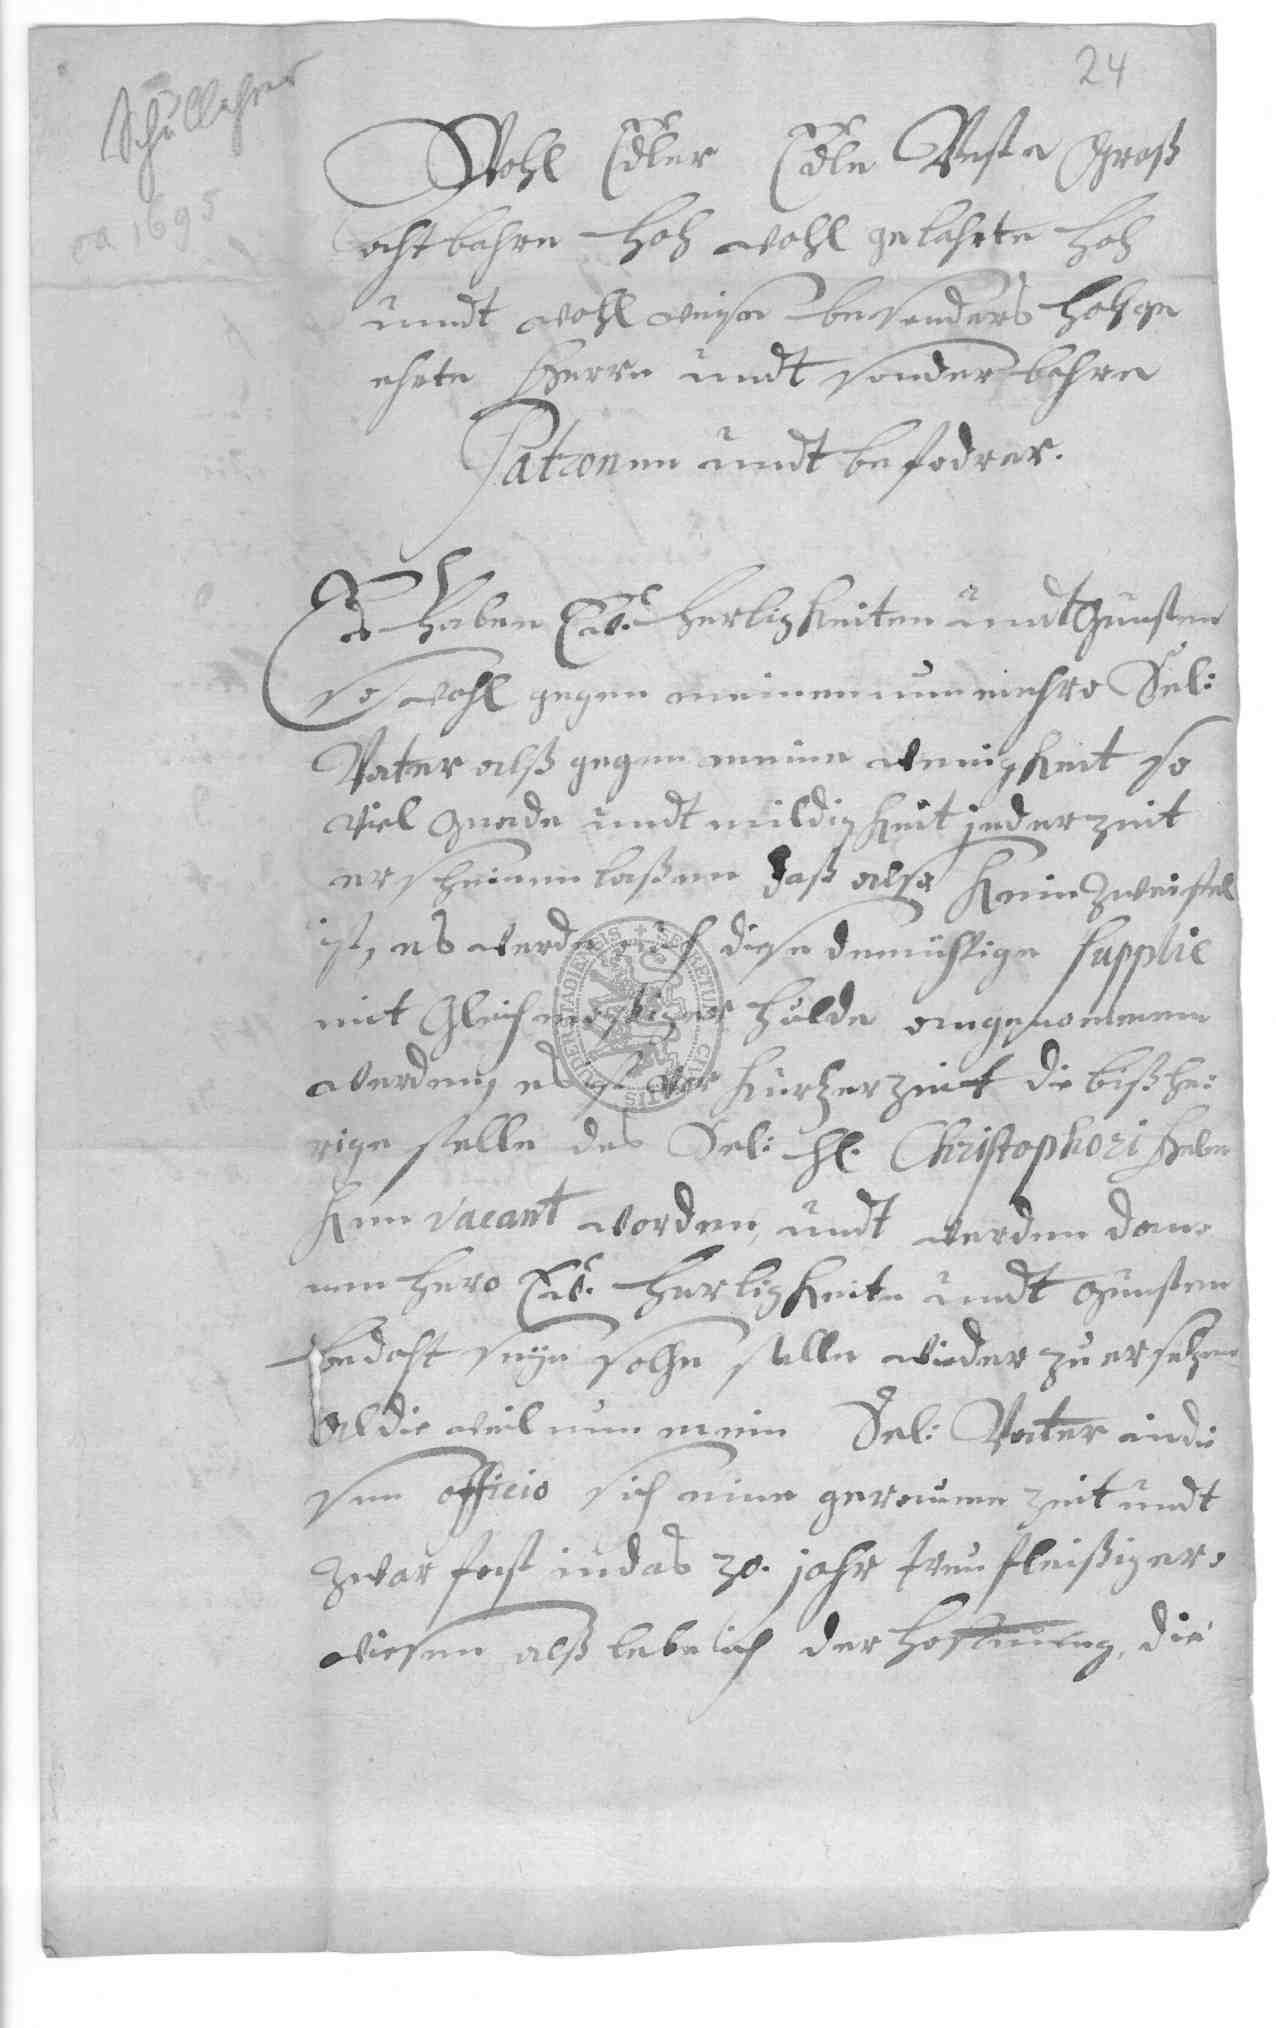 24
Schullehrer
ca 1695
Wohl Edler Edle Veste Groß
acht bahre hoch wohl gelahrte hoch
undt wohl weise besonders hochge
ehrte Herrn undt sonderbahre
Patronen undt befodrer.
Es haben Ew. Herligkeiten undt Gunsten
so wohl gegen meinen nunmehro Sel:
Vater alß gegen meine wenigkeit so
viel gnade undt mildigkeit jederzeit
erscheinen laßen daß also kein Zweiffel
ist, es werde auch diese demüthige supplic
mit Gleichmeßiger hulde angenommen
werden, es ist vor kurtzer zeit die bißhe:
rige stelle des Sel: H. Christophori
vacant worden, undt werden dan:
nenhero Ew. Herligkeiten undt Gunsten
bedacht seyn solche stelle wieder zu ersetzen
Aldieweil nun mein Sel: Vater in die
sem officio sich eine geraume zeit undt
zwar fast in das 30. jahr treufleißig er:
wiesen alß lebe ich der hoffnung, die
CIVITATIS